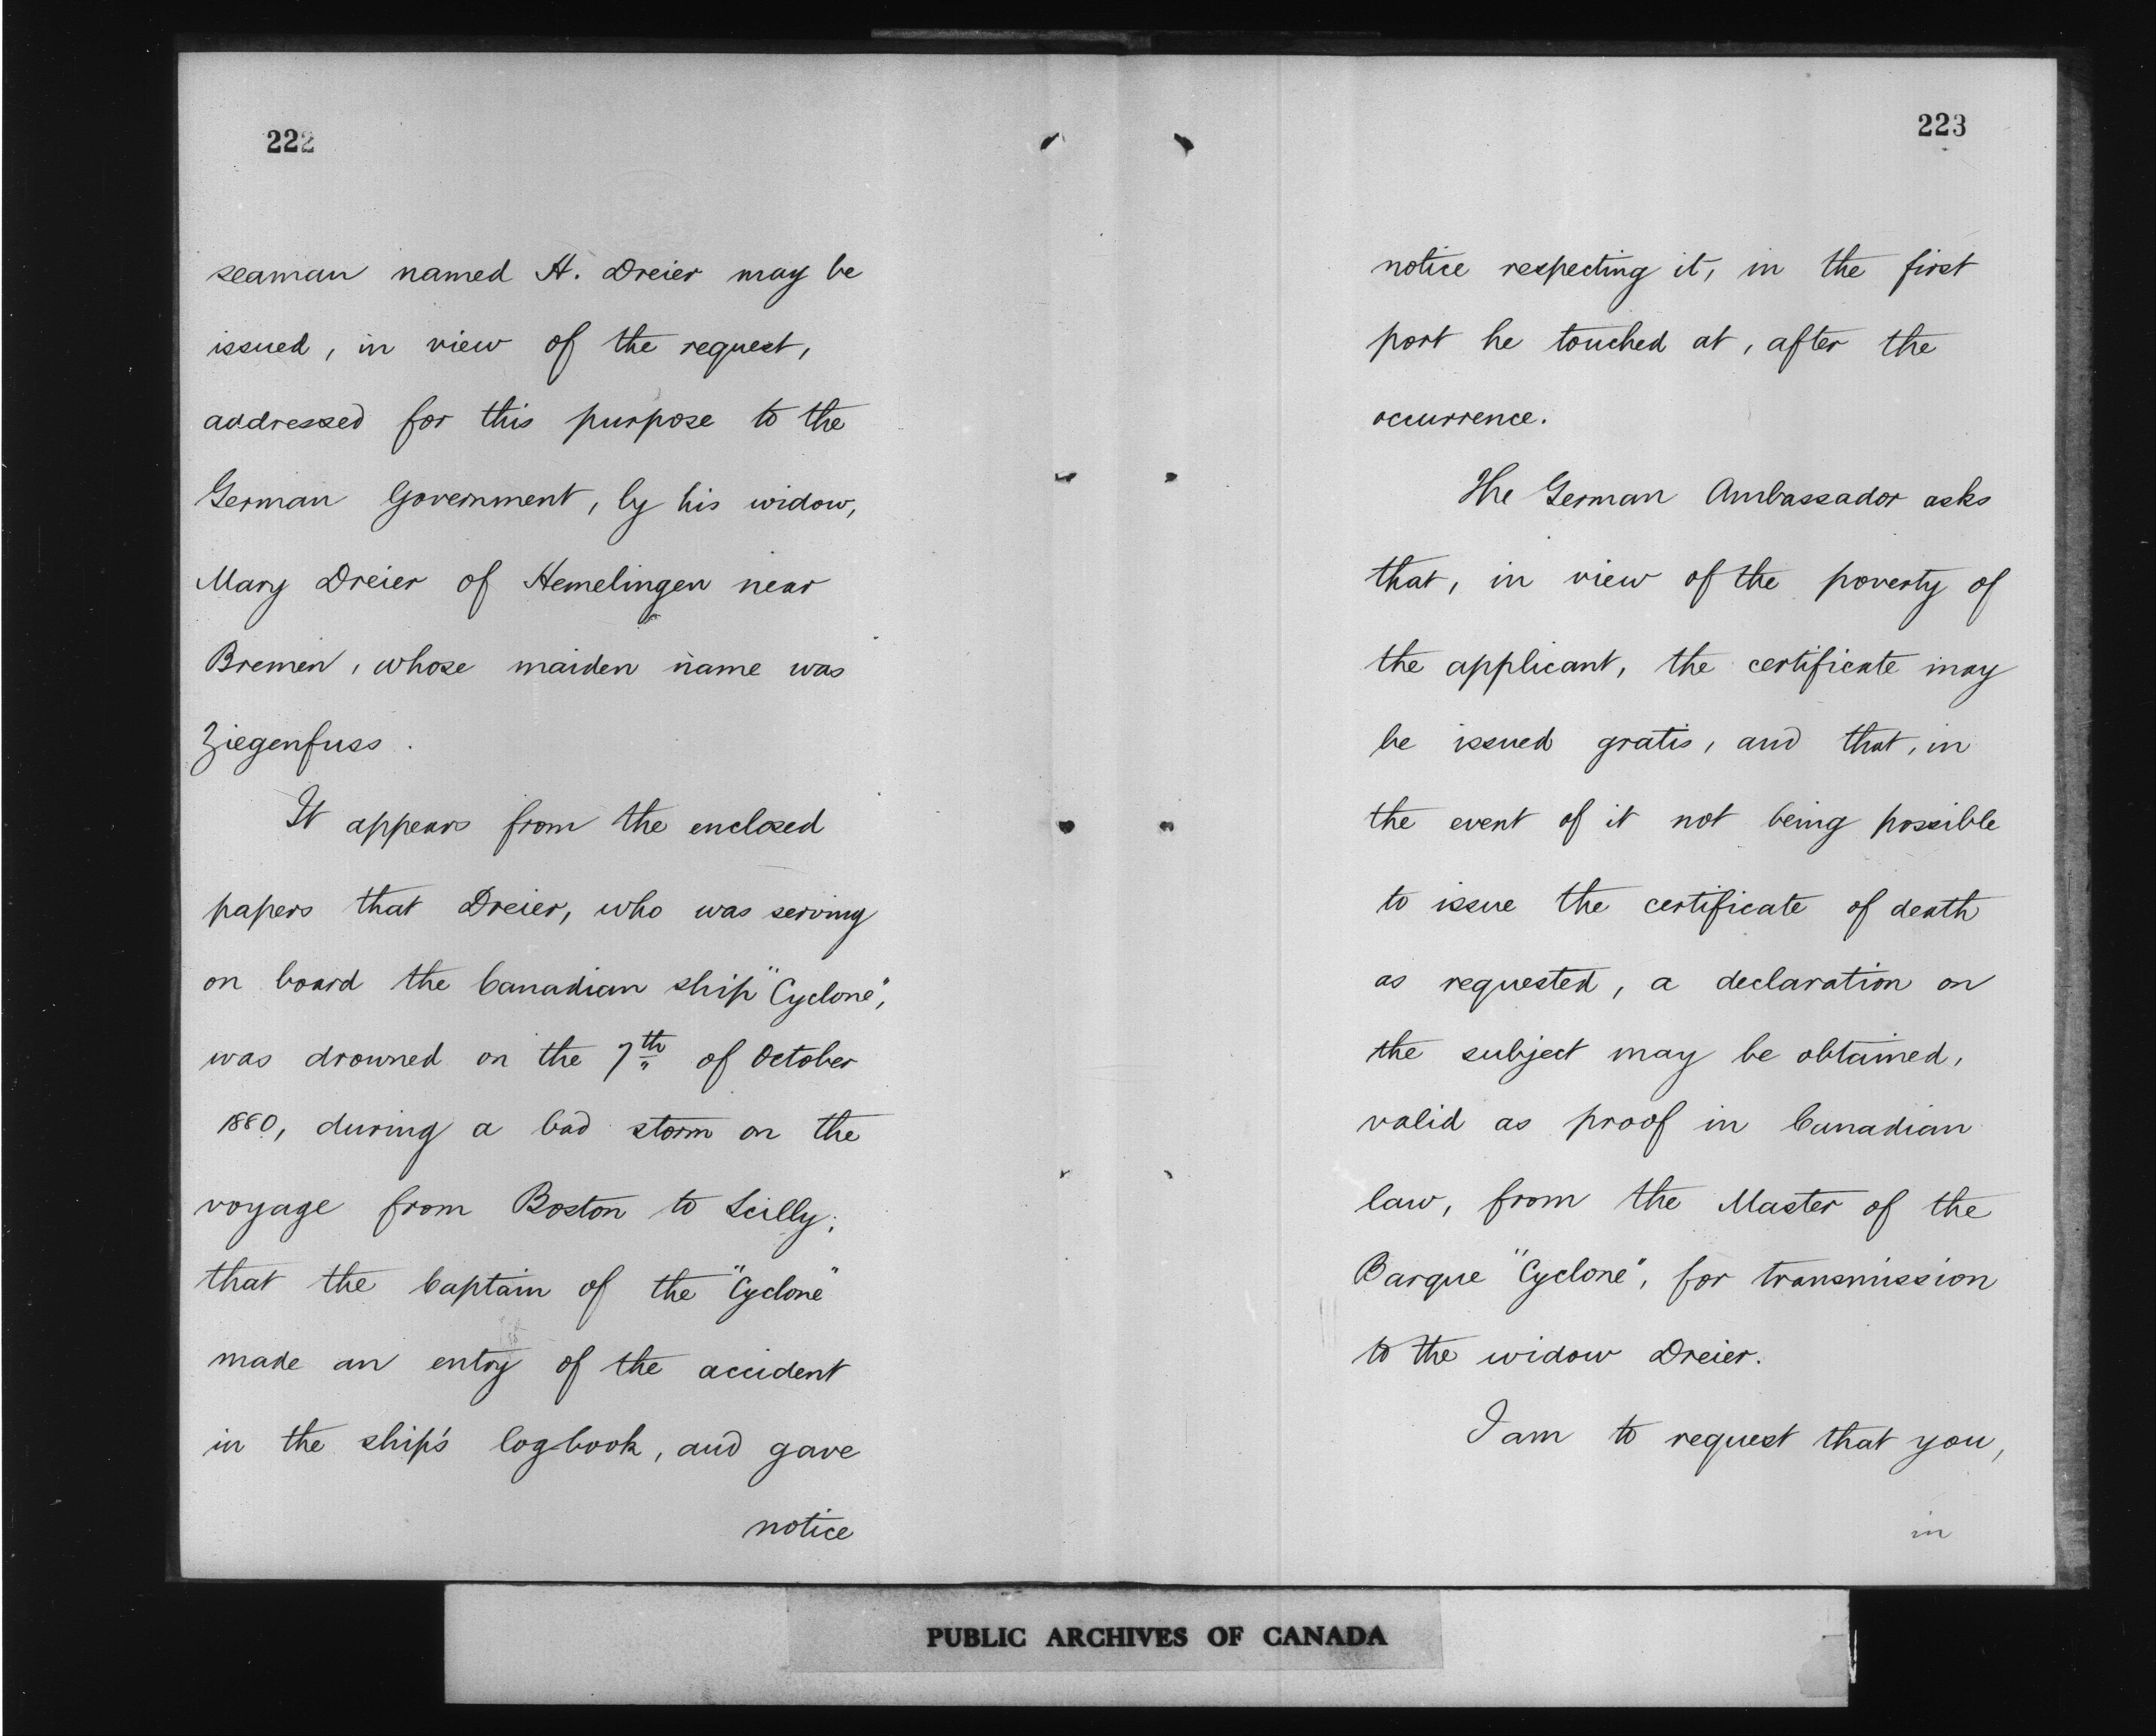 222
seaman named H. Dreier may be
issued, in view of the request,
addressed for this purpose to the
German Government, by his widow,
Mary Dreier of Hemelingen near
Bremen, whose maiden name was
Ziegenfuss.
It appears from the enclosed
papers that Dreier, who was serving
on board the Canadian ship "Cyclone",
was drowned on the 7th of October
1880, during a bad storm on the
voyage from Boston to Scilly;
that the Captain of the "Cyclone"
made an entry of the accident
in the ship's log-book, and gave
notice
223
notice respecting it, in the first
port he touched at, after the
occurrence.
The German Ambassador asks
that, in view of the poverty of
the applicant, the certificate may
be issued gratis, and that, in
the event of it not being possible
to issue the certificate of death
as requested, a declaration on
the subject may be obtained,
valid as proof in Canadian
law, from the Master of the
Barque "Cyclone", for transmission
to the widow Dreier.
I am to request that you,
in
PUBLIC ARCHIVES OF CANADA